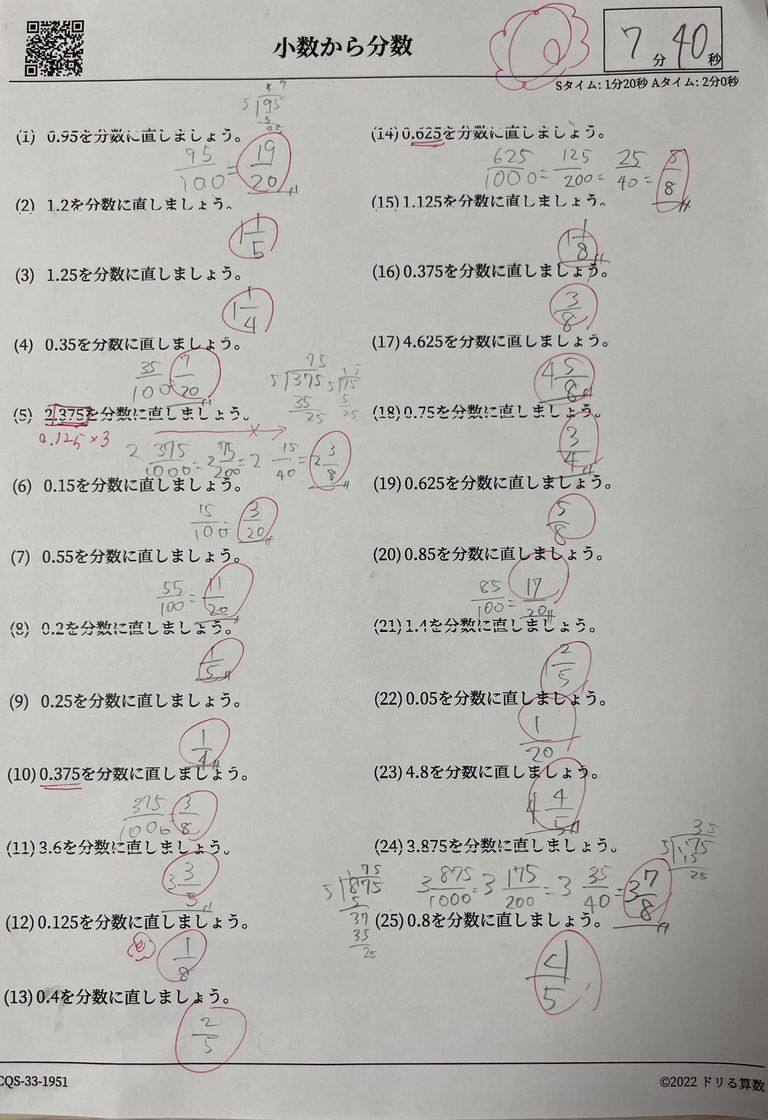 小数から分数
7分40秒
Sタイム: 1分20秒 Aタイム: 2分0秒
(1) 0.95を分数に直しましょう。
95/100 = 19/20
(2) 1.2を分数に直しましょう。
1 1/5
(3) 1.25を分数に直しましょう。
1 1/4
(4) 0.35を分数に直しましょう。
35/100 7/20
(5) 2.375を分数に直しましょう。
0.125×3
2 375/1000 = 2 75/200 = 2 15/40 = 2 3/8
(6) 0.15を分数に直しましょう。
15/100 = 3/20
(7) 0.55を分数に直しましょう。
55/100 = 11/20
(8) 0.2を分数に直しましょう。
1/5
(9) 0.25を分数に直しましょう。
1/4
(10) 0.375を分数に直しましょう。
375/1000 3/8
(11) 3.6を分数に直しましょう。
3 3/5
(12) 0.125を分数に直しましょう。
1/8
(13) 0.4を分数に直しましょう。
2/5
(14) 0.625を分数に直しましょう。
625/1000 = 125/200 = 25/40 = 5/8
(15) 1.125を分数に直しましょう。
1 1/8
(16) 0.375を分数に直しましょう。
3/8
(17) 4.625を分数に直しましょう。
4 5/8
(18) 0.75を分数に直しましょう。
3/4
(19) 0.625を分数に直しましょう。
5/8
(20) 0.85を分数に直しましょう。
85/100 = 17/20
(21) 1.4を分数に直しましょう。
1 2/5
(22) 0.05を分数に直しましょう。
1/20
(23) 4.8を分数に直しましょう。
4 4/5
(24) 3.875を分数に直しましょう。
3 875/1000 = 3 175/200 = 3 35/40 = 3 7/8
(25) 0.8を分数に直しましょう。
4/5
CQS-33-1951
©2022 ドリる算数